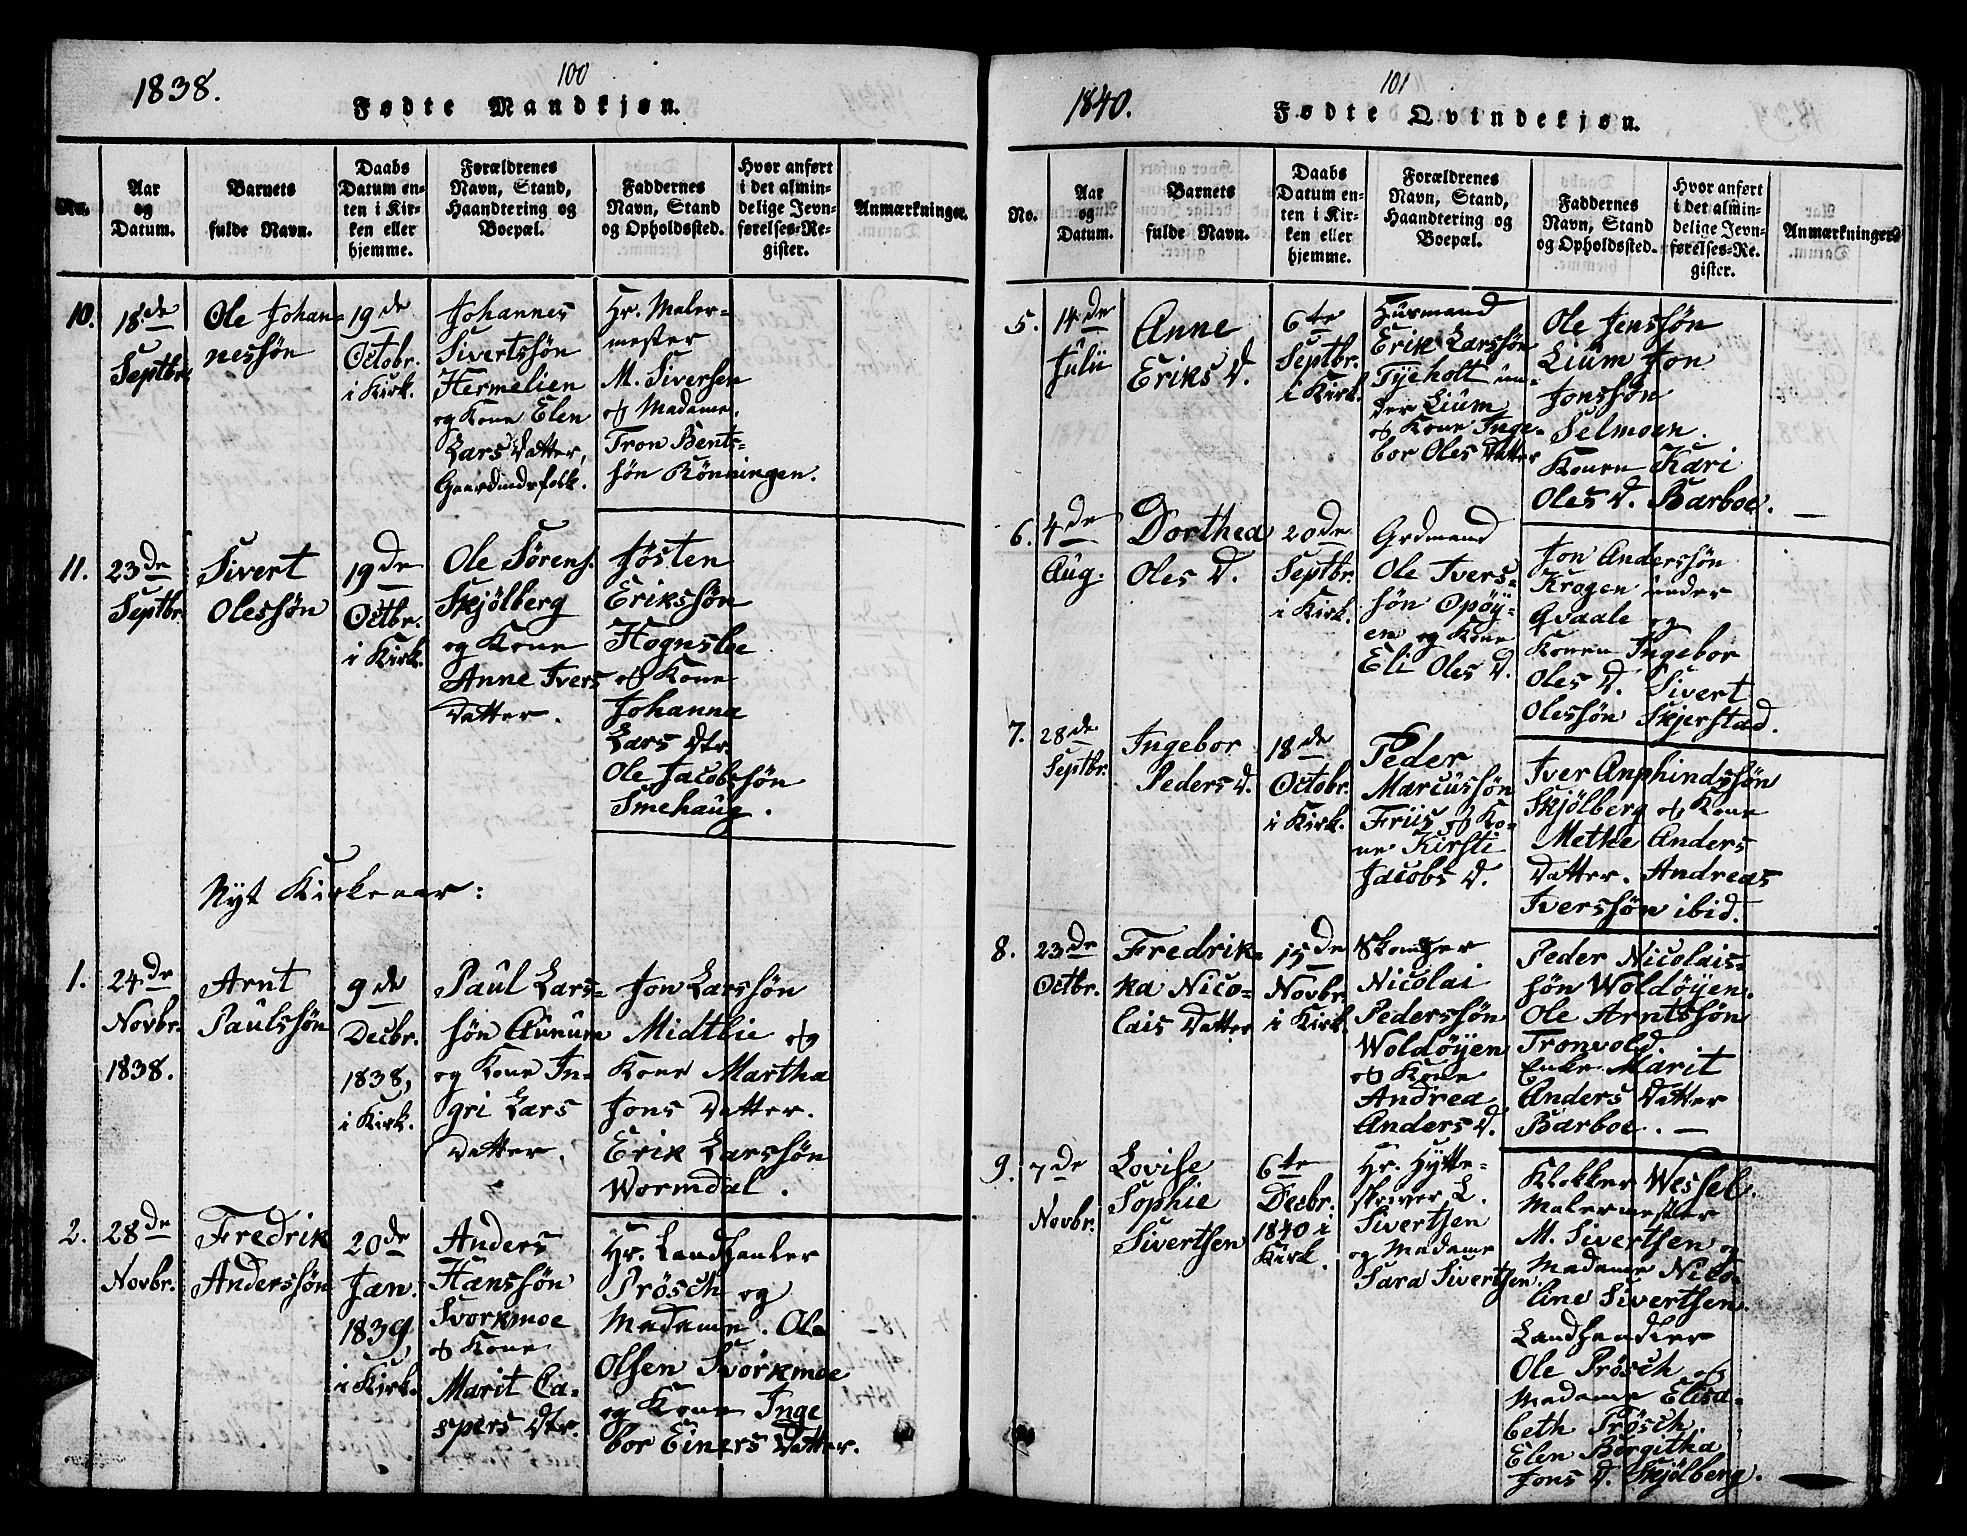 1838.
100
Fødte Mandkjøn.
No.
Aar
og
Datum.
Barnets
fulde Navn.
Daabs
Datum en-
ten i Kir-
ken eller
hjemme.
Forældrenes
Navn, Stand,
Haandtering og
Boepæl.
Faddernes
Navn, Stand
og Opholdssted.
Hvor anført
i det almin-
delige Jevn-
førelses-Re-
gister.
Anmærkninger.
10.
18de
Septbr.
Ole Johan-
nessøn
19de
Octobr.
i Kirk.
Johannes
Sivertssøn
Hermelien
og Kone Elen
Lars Datter,
Gaardmdsfolk.
Hr. Maler-
mester
M. Siversen
og Madame.
Tron Bents-
søn Rönningen.
11.
23de
Septbr.
Sivert
Olessøn
19de
Octbr.
i Kirk.
Ole Sørens.
Skjölberg
og Kone
Anne Ivers
Datter.
Jösten
Erikssøn
Hognsloe
og Kone
Johanna
Lars Dtr.
Ole Jacobssøn
Smehaug.
Nyt Kirkeaar:
1.
24de
Novbr.
1838.
Arnt
Paulssøn
9de
Decbr.
1838,
i Kirk.
Paul Lars-
søn Aunum
og Kone In-
gri Lars
Datter.
Jon Larssøn
Midtlie og
Kone Martha
Jons Datter.
Erik Larssøn
Wormdal.
2.
28de
Novbr.
Fredrik
Anderssøn
20de
Jan.
1839,
i Kirk.
Anders
Hanssøn
Svorkmoe
og Kone
Marit Ca-
spers Dtr.
Hr. Landhanler
Prösch og
Madame. Ole
Olsen Svorkmoe
og Kone Inge
bor Einers Datter.
1840.
101
Fødte Qvindekjøn.
No.
Aar
og
Datum.
Barnets
fulde Navn.
Daabs
Datum en-
ten i Kir-
ken eller
hjemme.
Forældrenes
Navn, Stand,
Haandtering og
Boepæl.
Faddernes
Navn, Stand
og Opholdssted.
Hvor anført
i det almin-
delige Jevn-
førelses-Re-
gister.
Anmærkninger.
5.
14de
Julii
Anne
Eriks D.
6te
Septbr.
i Kirk.
Huusmand
Erik Larssøn
Tyeholt un-
der Lium
og Kone Inge-
bor Oles Datter
Ole Jenssøn
Lium Jon
Jonssøn
Selmoen.
Konen Kari
Oles D. Barboe.
6.
4de
Aug.
Dorthea
Oles D.
20de
Septbr.
i Kirk.
Grdmand
Ole Ivers-
søn Opøy-
en og Kone
Eli Oles D.
Jon Anderssøn
Krogen under
Qvaale og
Konen Ingebor
Oles D. Sivert
Olessøn Skjerstad.
7.
28de
Septbr.
Ingebor
Peders D.
18de
Octobr.
i Kirk.
Peder
Marcussøn
Friis og Ko-
ne Kirsti
Jacobs D.
Iver Anphindssøn
Skjölberg og Kone
Methe Anders
Datter. Andreas
Iverssøn ibid.
8.
23de
Octbr.
Fredrik-
ka Nico-
lais Datter
15de
Novbr.
i Kirk.
Skomager
Nicolai
Pederssøn
Woldøyen
og Kone
Andrea
Anders D.
Peder Nicolais-
søn Woldøyen.
Ole Arntssøn
Tronvold
Enke Marit
Anders Datter
Barboe.
9.
7de
Novbr.
Lovise
Sophie
Sivertsen
6te
Decbr.
1840 i
Kirk.
Hr. Hytte-
skriver L.
Sivertsen
og Madame
Sara Sivertsen.
Klokker Wessel.
Malermester
M. Sivertsen og
Madame Nico-
line Sivertsen.
Landhandler
Ole Prösch og
Madame Elisa-
beth Prösch.
Elen Borgitha
Jons D. Skjölberg.